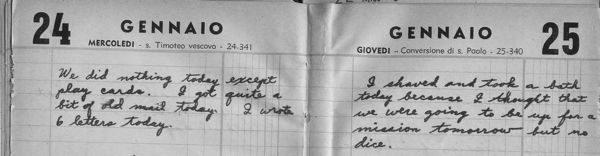 24 GENNAIO
MERCOLEDI - s. Timoteo vescovo - 24-341
We did nothing today except
play cards. I got quite a
bit of old mail today. I wrote
6 letters today.
GENNAIO 25
GIOVEDI - Conversione di s. Paolo - 25-340
I shaved and took a bath
today because I thought that
we were going to be up for a
mission tomorrow but no
dice.